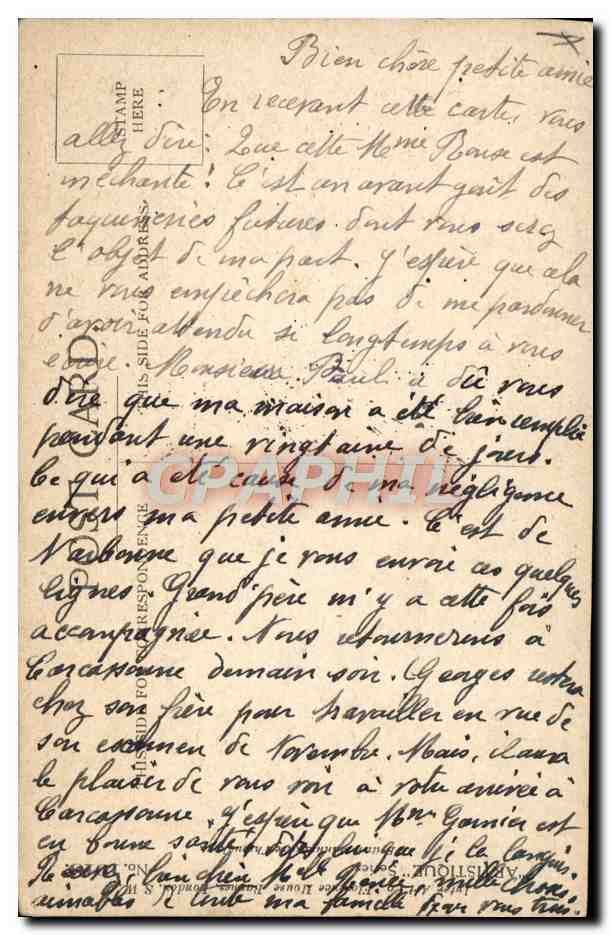 Bien chère petite amie
En recevant cette carte, vous
allez dire : Que cette Mme Rouse est
méchante ! C'est un avant goût des
taquineries futures dont vous serez
l'objet de ma part. J'espère que cela
ne vous empêchera pas de me pardonner
d'avoir attendu si longtemps à vous
écrire. Monsieur Paul a dû vous
dire que ma maison a été bien remplie
pendant une vingtaine de jours.
Ce qui a été cause de ma négligence
envers ma petite amie. C'est de
Narbonne que je vous envoie ces quelques
lignes. Grand'père m'y a cette fois
accompagnée. Nous retournerons à
Carcassonne demain soir. Georges restera
chez son frère pour travailler en vue de
son examen de Novembre. Mais, il aura
le plaisir de vous voir à votre arrivée à
Carcassonne. J'espère que Mme Garnier est
en bonne santé, dites lui que je
bien chère Mlle
aimables de toute ma famille pour vous trois.
STAMP
HERE
POST CARD
THIS SIDE FOR ADDRESS.
THIS SIDE FOR CORRESPONDENCE
"ARTISTIQUE" Series
No.
House Barnes London, S.W.
CPAPHIL